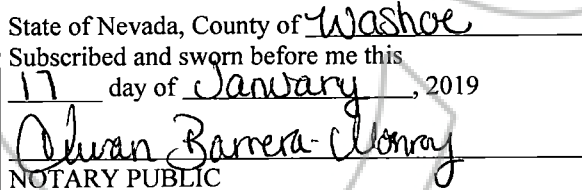 State of Nevada, County of Washoe
Subscribed and sworn before me this
17 day of January, 2019
Barrera-Monroy
NOTARY PUBLIC